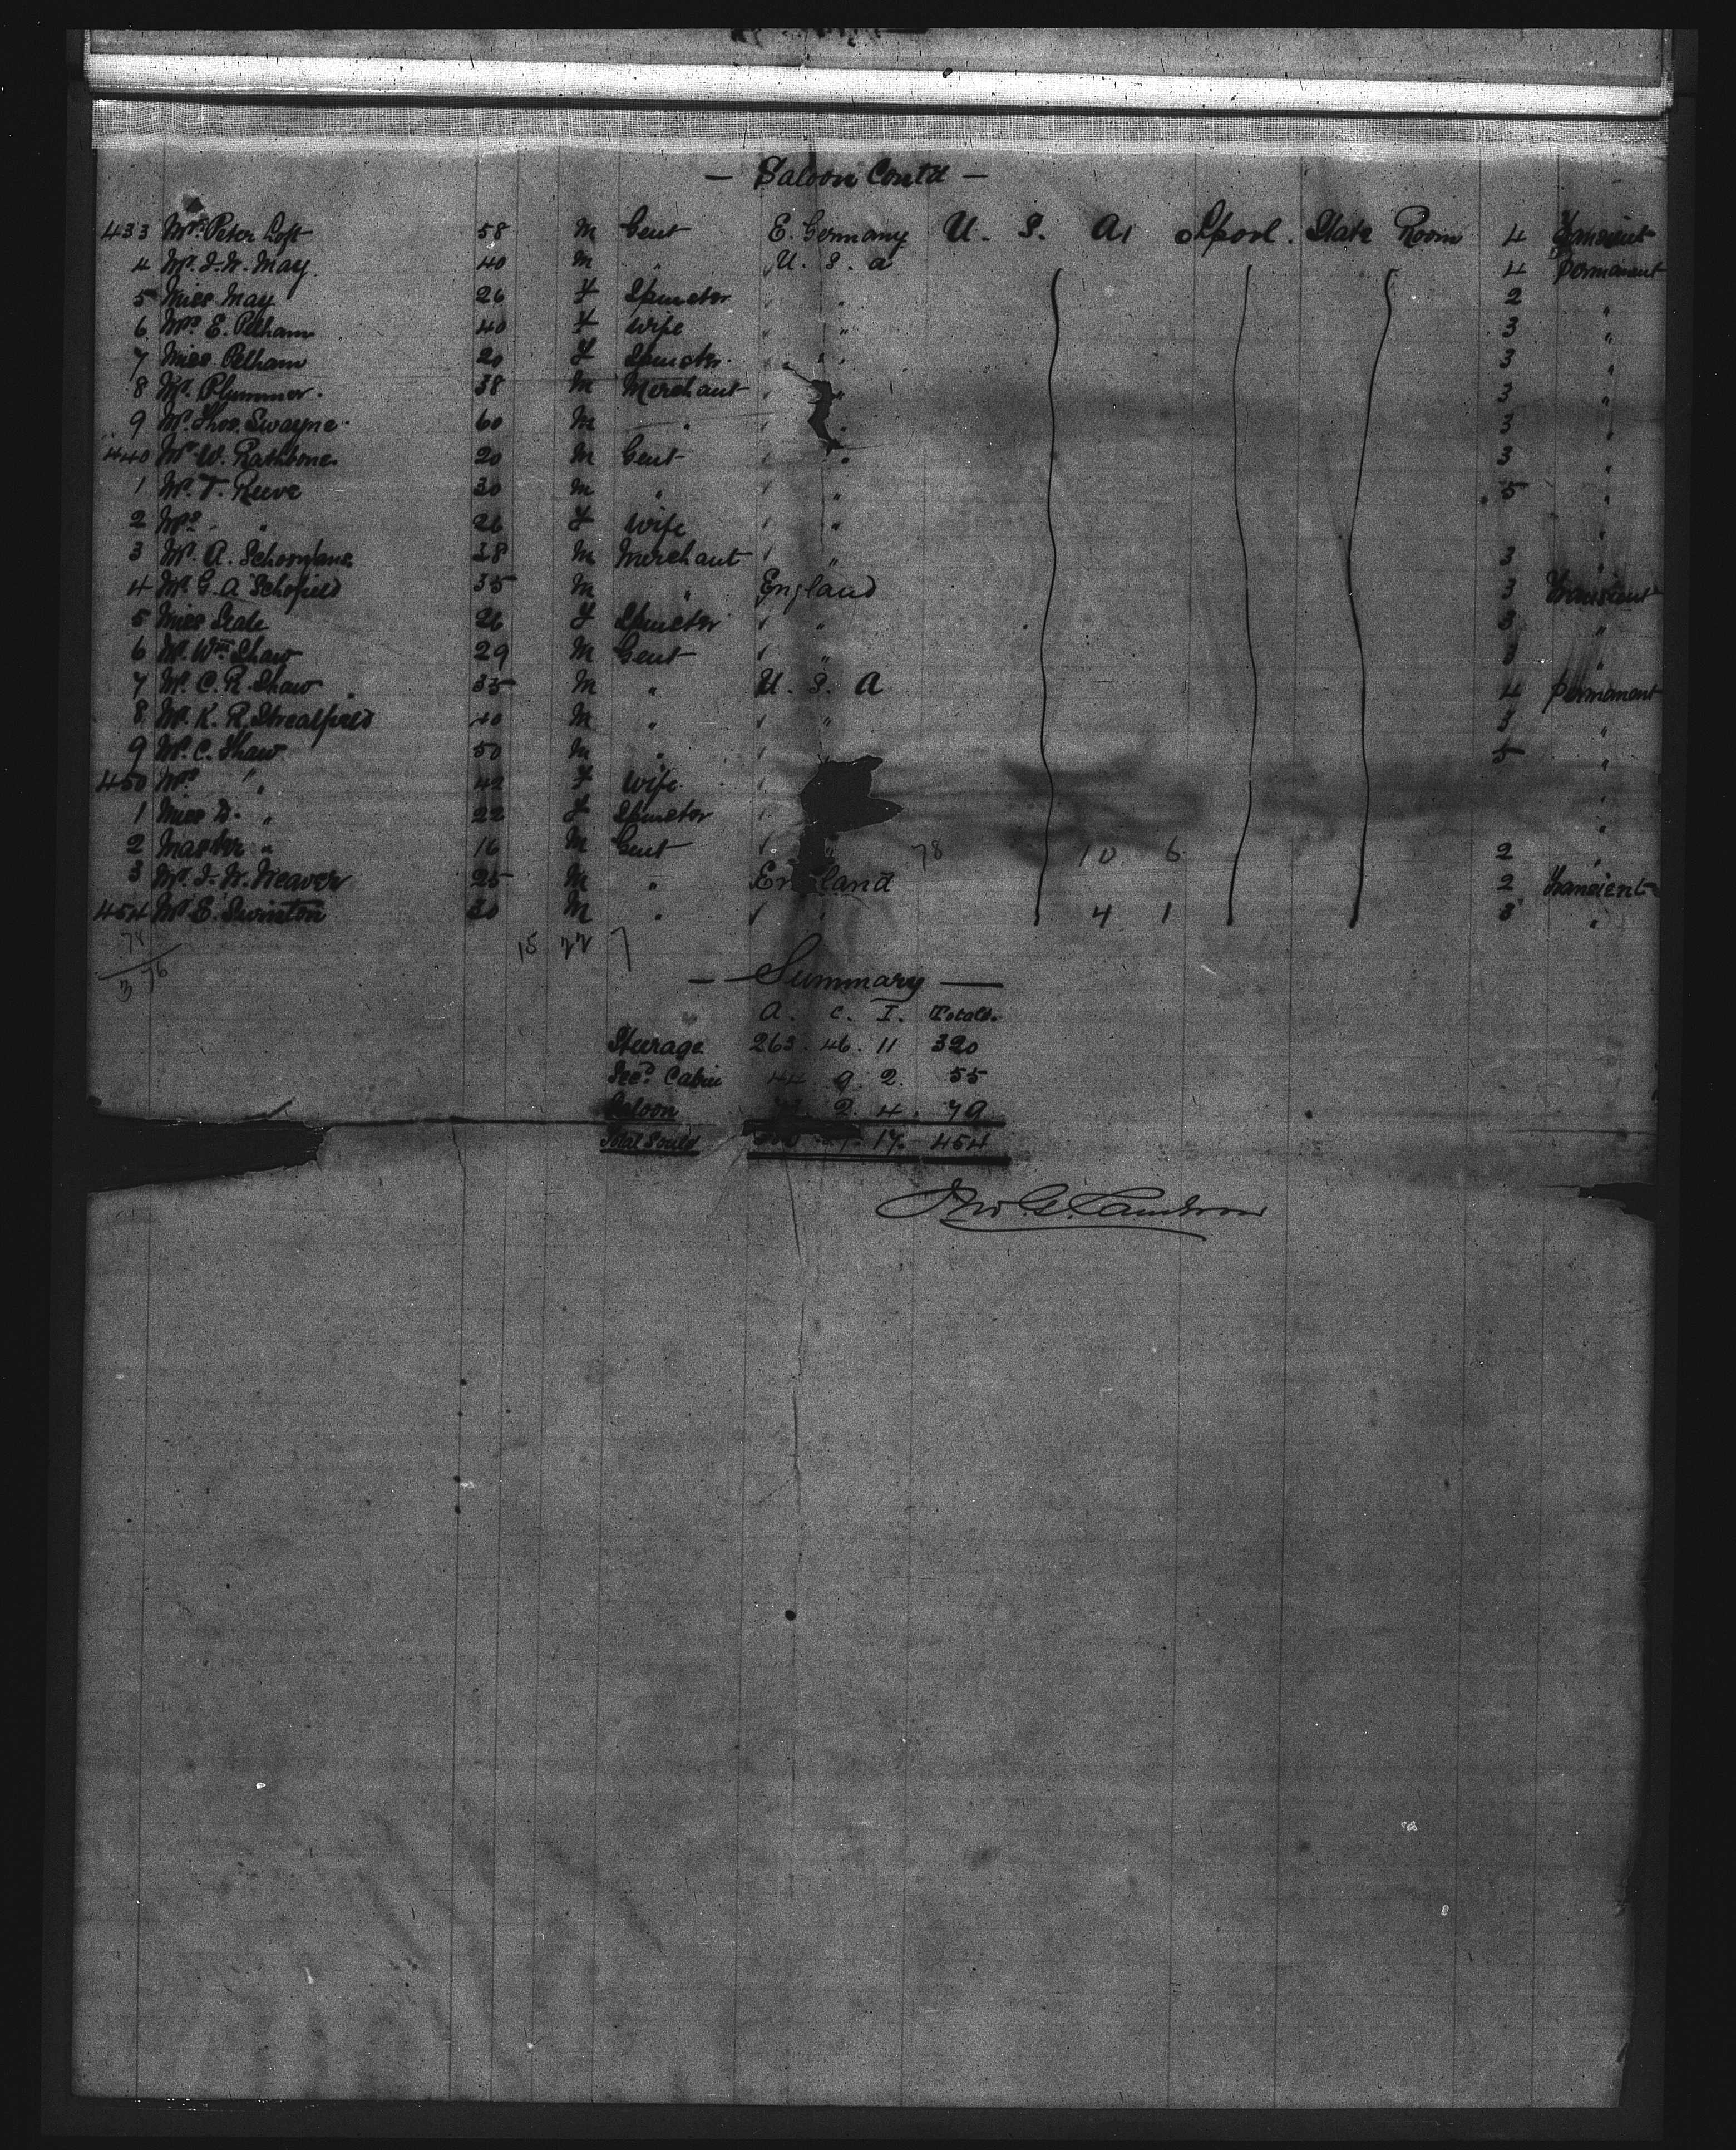 — Saloon Contd —
433 Mr. Peter Loft 58 M Gent E. Germany U. S. A. Lpool. State Room 4 Transient
4 Mr. J. W. May. 40 M " U. S. a 4 permanent
5 Miss May 26 F Spinster " " 2 "
6 Mrs E. Pelham 40 F Wife " " 3 "
7 Miss Pelham 20 F Spinster. " " 3 "
8 Mr. Plummer. 38 M Merchant " " 3 "
9 Mr. Thos. Swayne. 60 M " " " 3 "
440 Mr. W. Rathbone. 20 M Gent " " 3 "
1 Mr. T. Reeve 30 M " " " 5 "
2 Mrs " 26 F Wife " " "
3 Mr. A. 38 M Merchant " " 3 "
4 Mr. G. A Schofield 35 M " England 3 Transient
5 Miss 26 F Spinster " " 3 "
6 Mr. Wm Shaw 29 M Gent " " 3 "
7 Mr. C. R. Shaw 35 M " U. S. A 4 permanent
8 Mr. K. R. Streatfield 40 M " " " 3 "
9 Mr. C. Thaw 50 M " " 5 "
450 Mrs " 42 F Wife. " "
1 Miss D. " 22 F Spinster " "
2 Master " 16 M Gent " 78 10 6 2 "
3 Mr. J. W. Weaver 25 M " England 2 Transient
454 Mr E. Swinton 30 M " " " 4 1 3 "
78
3 76
15 22 7
— Summary —
A. C. I. Totals.
Steerage 263. 46. 11 320
Secd Cabin 44. 9. 2. 55
Saloon 2. 4. 79
Total Souls 17. 454